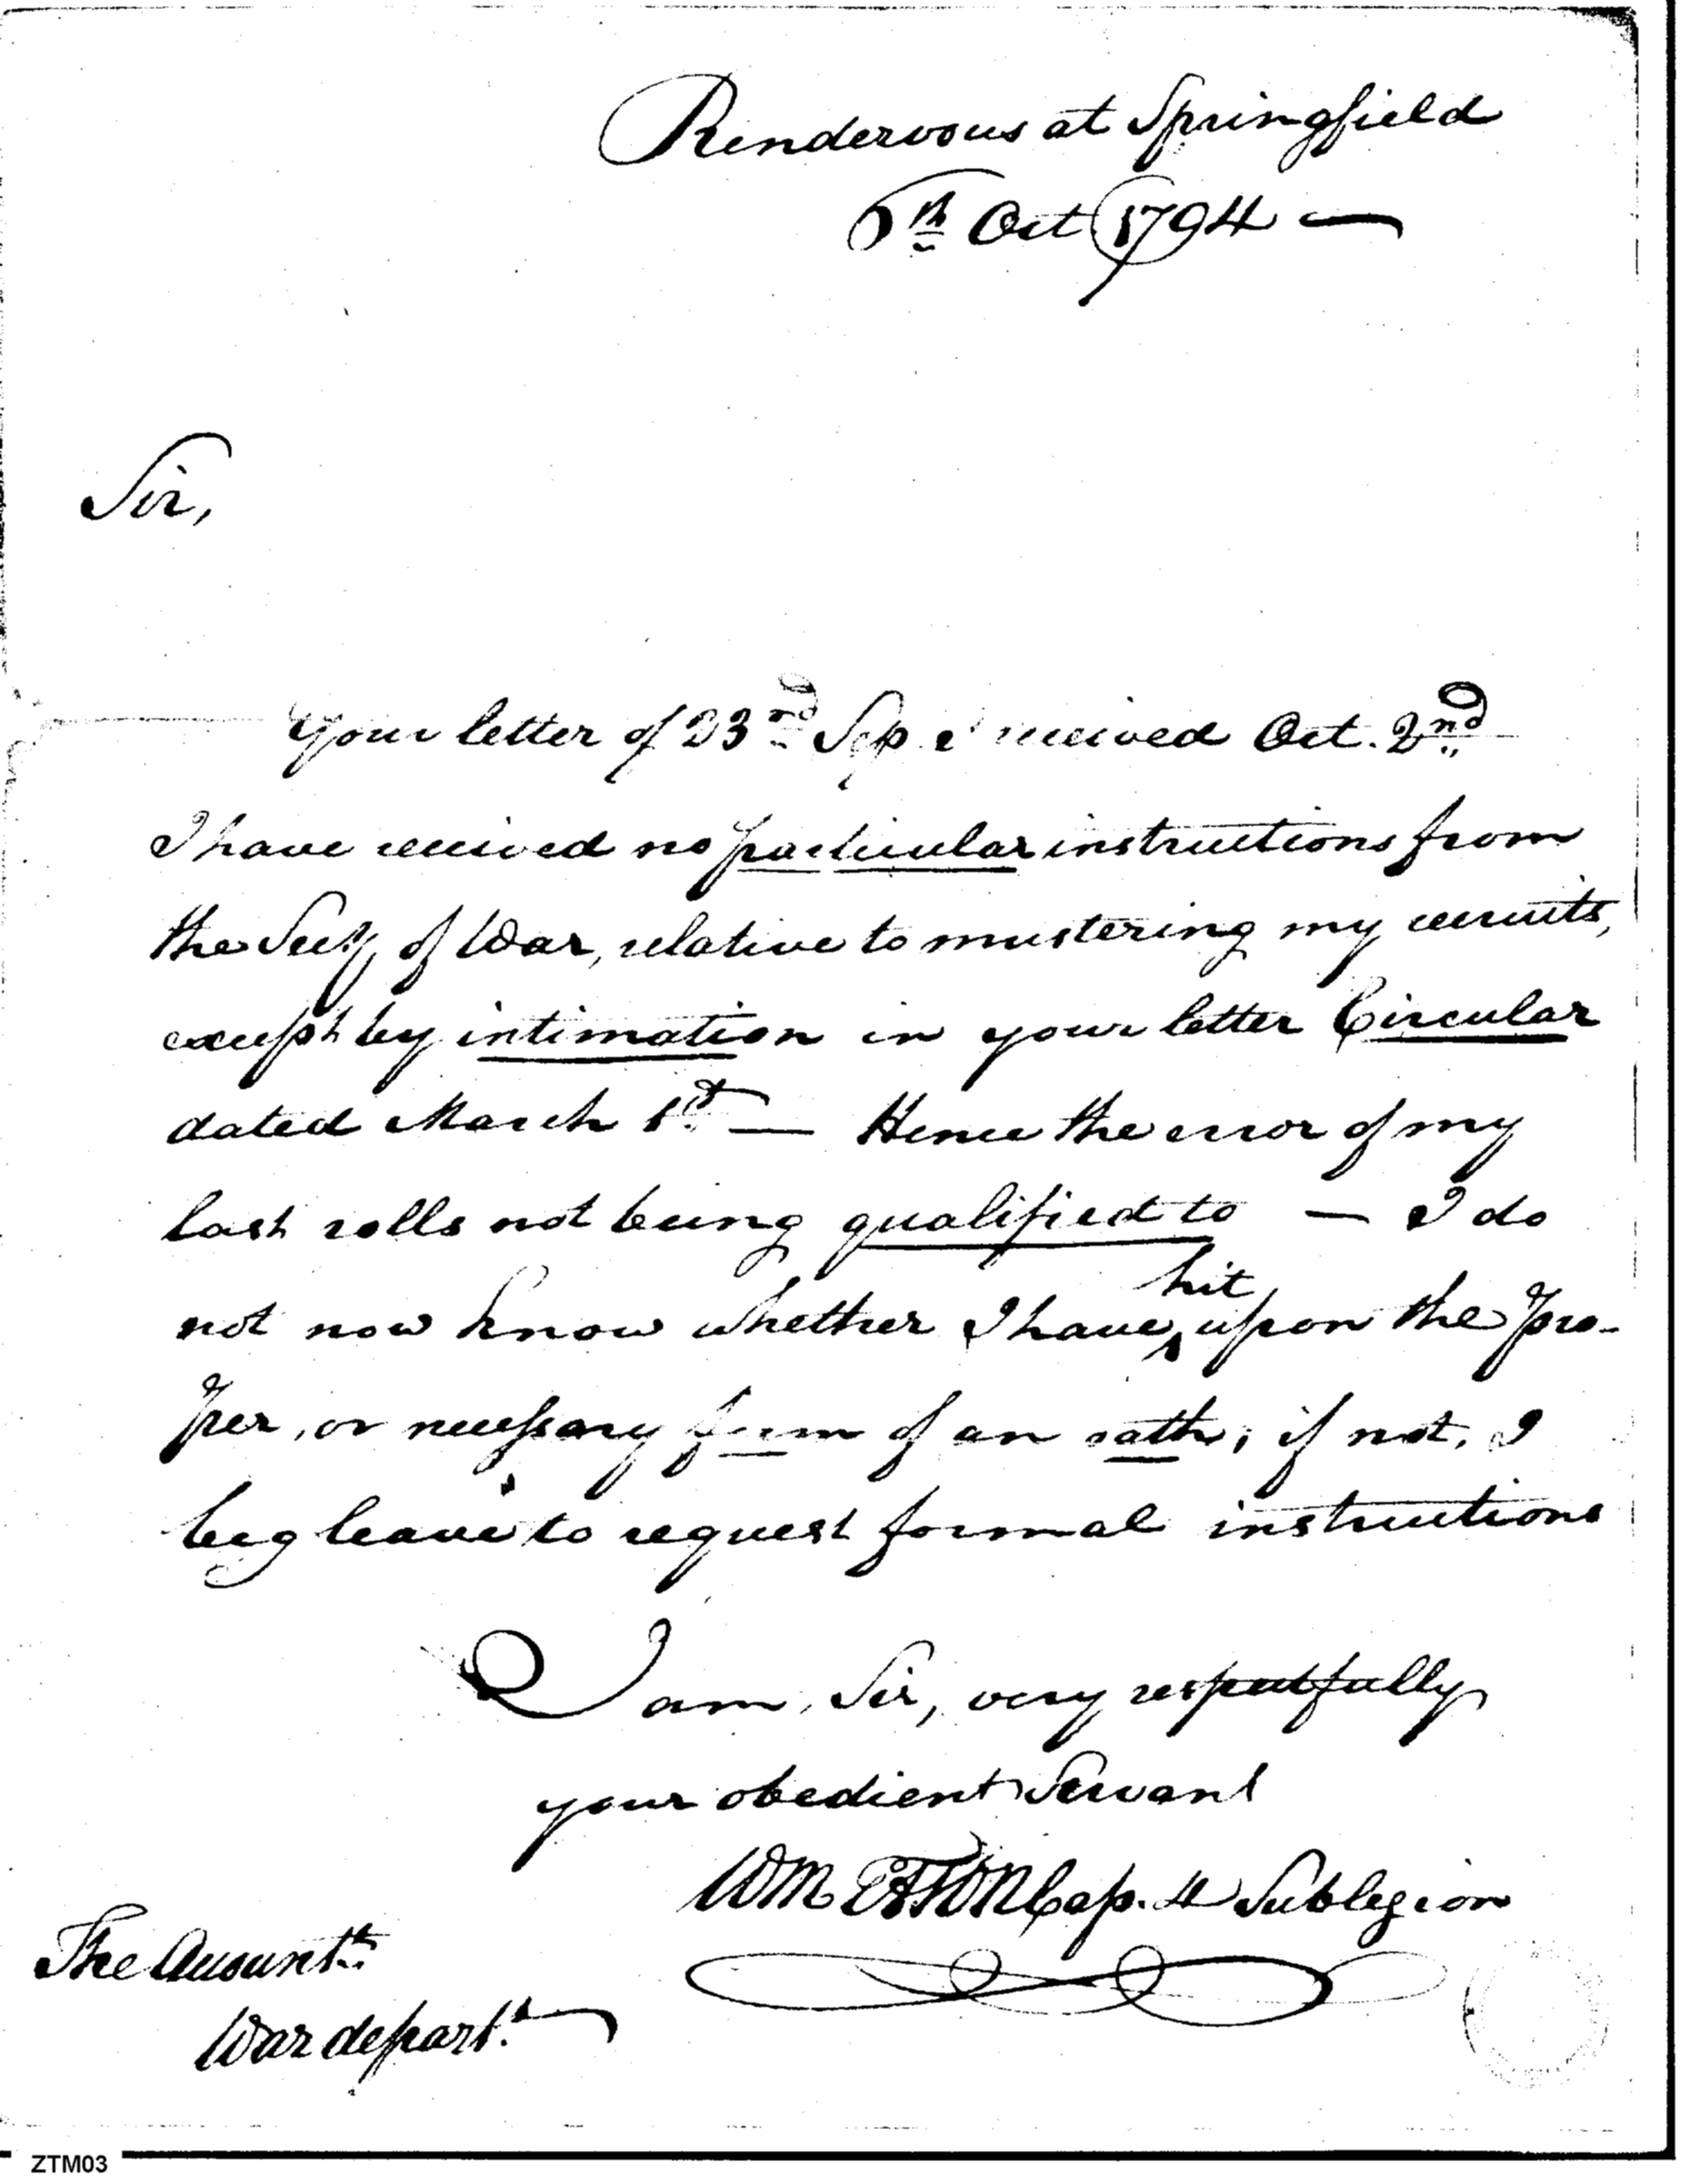 Rendervous at Springfield
6th Oct 1794 —
Sir,
Your letter of 23nd Sep I received Oct. 2nd
I have received no particular instructions from
the Secy of War, relative to mustering my recruits,
except by intimation in your letter Circular
dated March 1st — Hence the error of my
last rolls not being qualified to — I do
not now know whether I have hit upon the pro-
per, or necessary form of an oath; if not, I
beg leave to request formal instructions
I am, Sir, very respectfully
your obedient Servant
WM EATON Cap. 4 Sublegion
The Accountt.
War depart.t
ZTM03